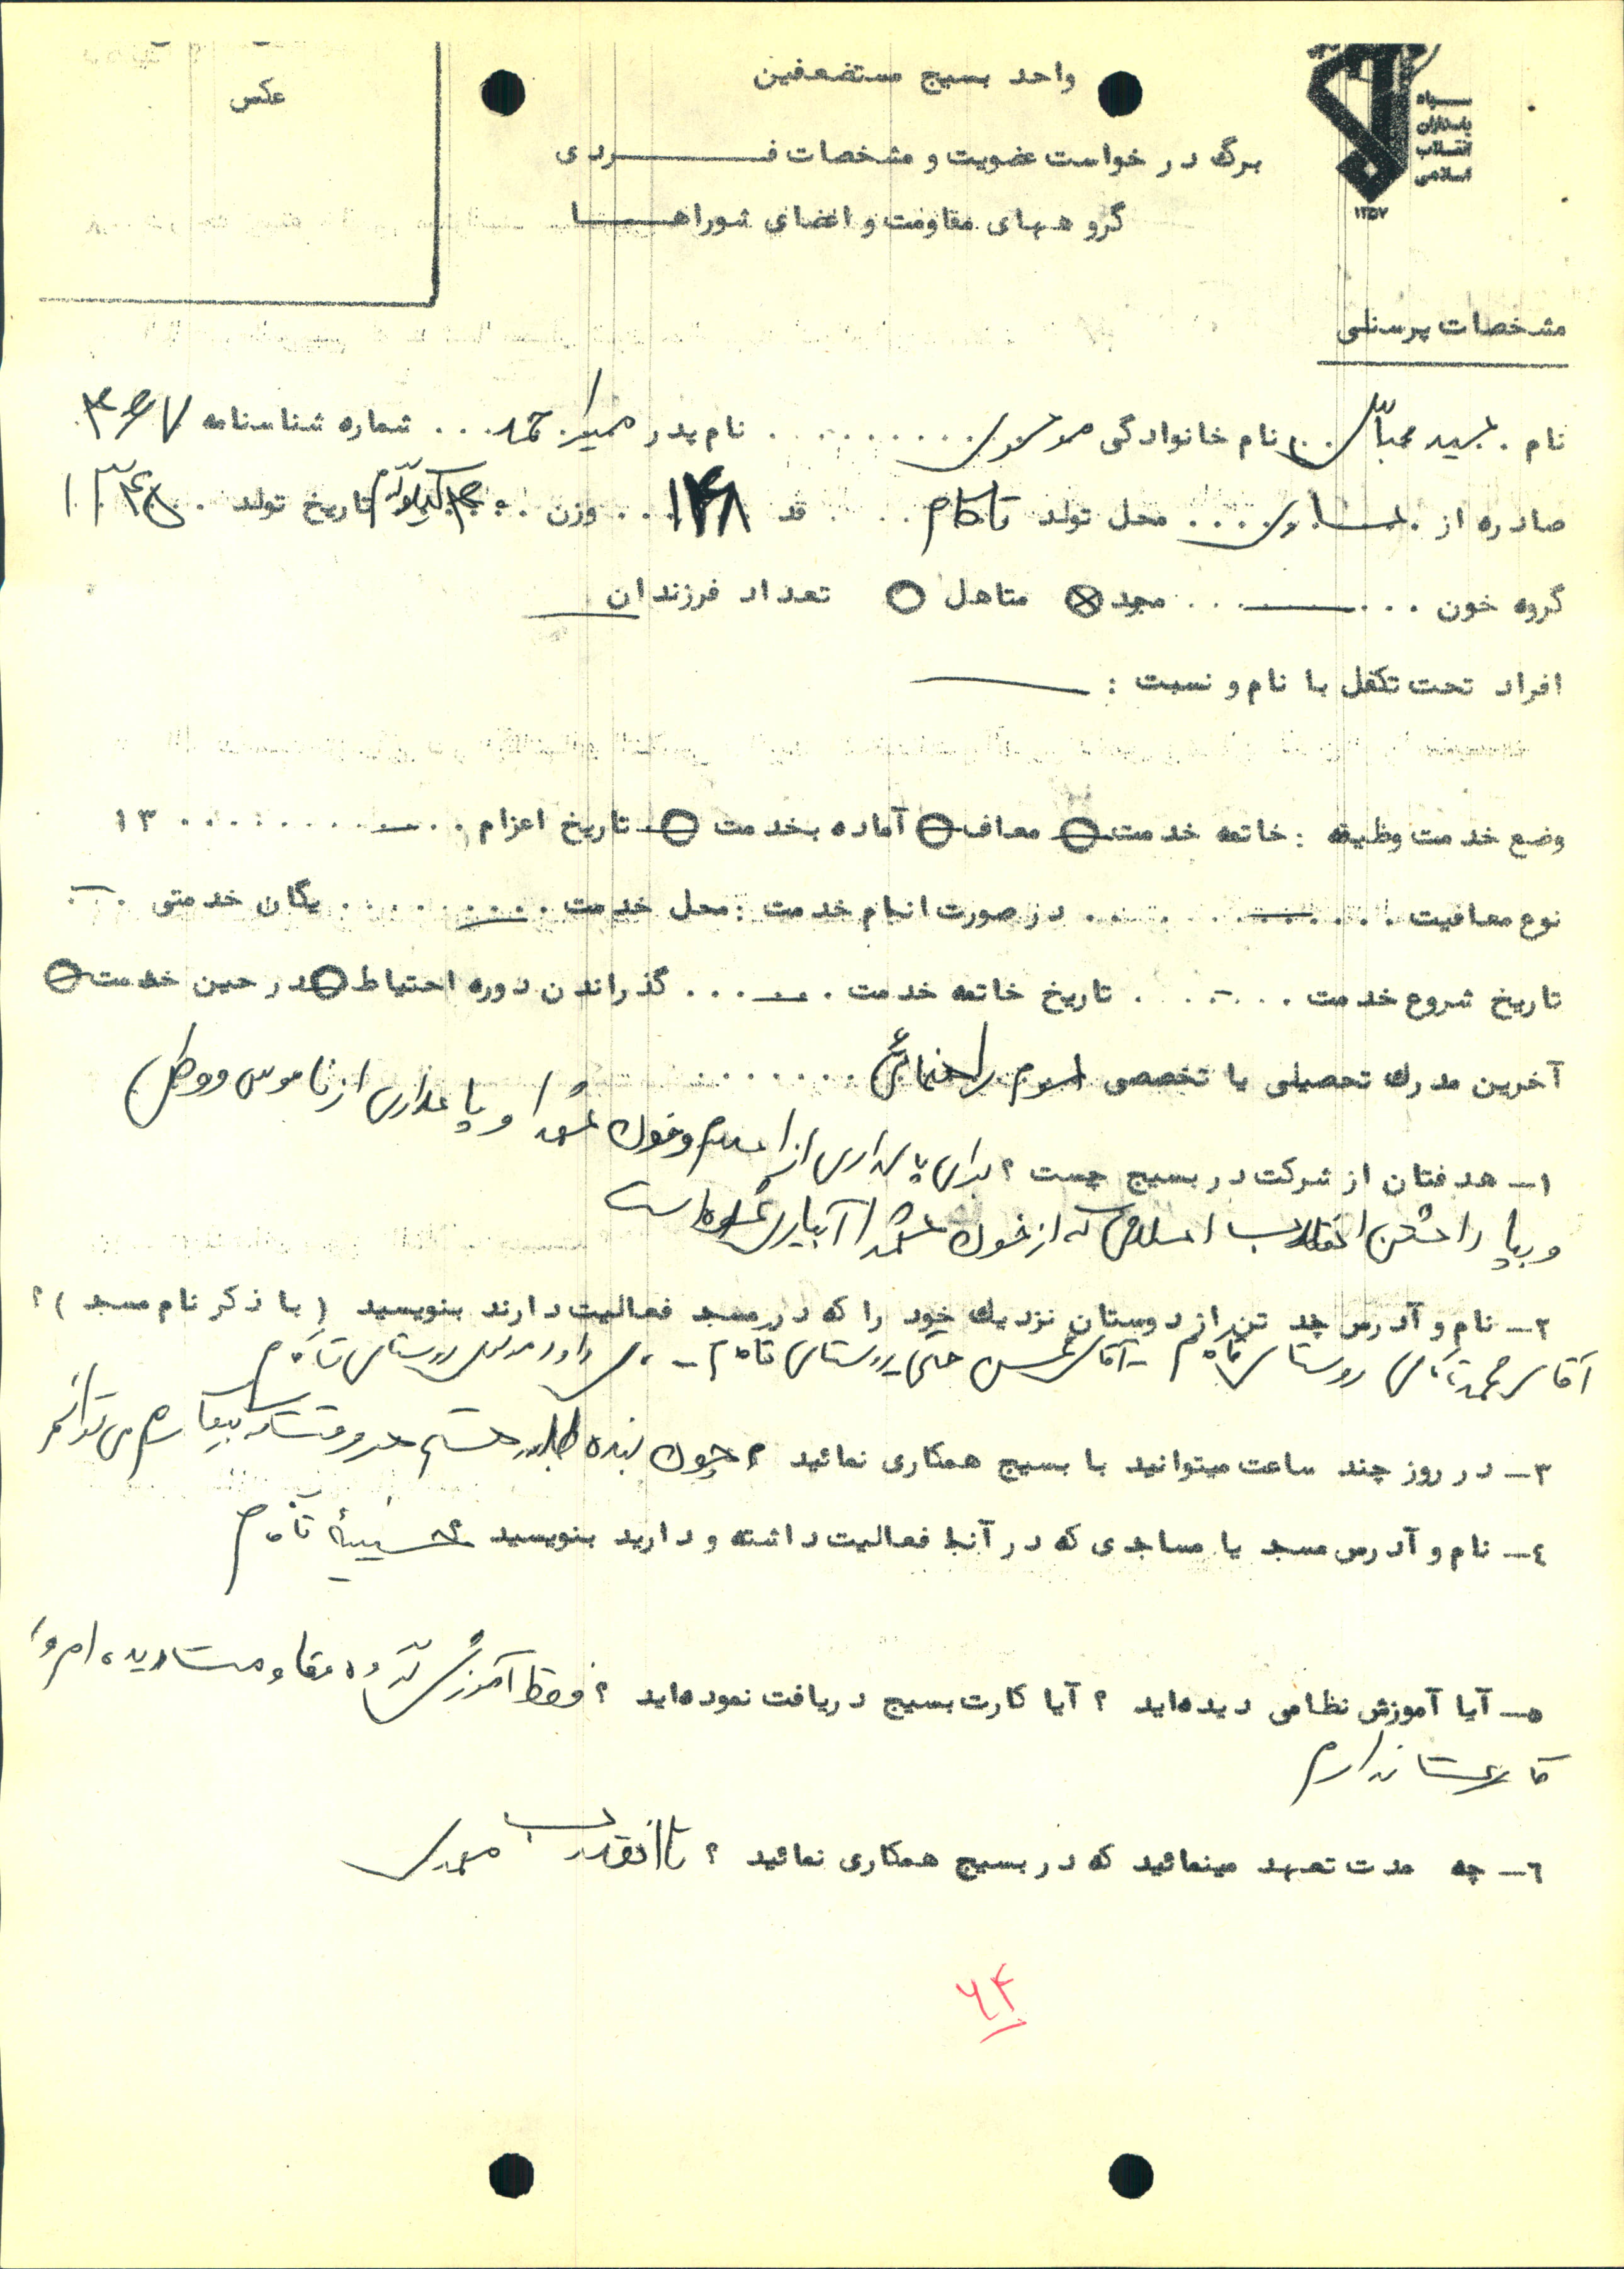 عکس
واحد بسیج مستضعفین
برگ درخواست عضویت و مشخصات فردی
گروههای مقاومت و اعضای شوراها
سپاه
پاسداران
انقلاب
اسلامی
۱۳۵۷
مشخصات پرسنلی
نام . سید عباس . نام خانوادگی موسوی . . . . نام پدر میراحمد . . . شماره شناسنامه ۴۶۷
صادره از . ساری . . . . محل تولد تاکام . . . قد ۱۴۸ . . وزن . ۴۰ کیلوگرم تاریخ تولد . . ۱۳۴۸
گروه خون . . . . . . مجرد ⊗ متاهل ○ تعداد فرزندان
افراد تحت تکفل با نام و نسبت :
وضع خدمت وظیفه : خاتمه خدمت ○ معاف ○ آماده بخدمت ○ تاریخ اعزام . . . . . . . . . ۱۳
نوع معافیت . . . . . . . . در صورت انجام خدمت : محل خدمت . . . . . . . . یگان خدمتی . . .
تاریخ شروع خدمت . . . . . تاریخ خاتمه خدمت . . . . . گذراندن دوره احتیاط ○ در حین خدمت ○
آخرین مدرك تحصیلی یا تخصصی سوم راهنمائی . . . . . . .
۱- هدفتان از شرکت در بسیج چیست ؟ برای پاسداری از اسلام و خون شهدا و پاسداری از ناموس و وطن
و برپا داشتن انقلاب اسلامی که از خون شهدا آبیاری شده است
۲- نام و آدرس چند تن از دوستان نزدیك خود را که در مسجد فعالیت دارند بنویسید ( با ذکر نام مسجد ) ؟
آقای محمد روستای تاکام - آقای حسن روستای تاکام - داود روستای تاکام
۳- در روز چند ساعت میتوانید با بسیج همکاری نمائید ؟ چون بنده هستم هر وقت که بیکارم می توانم
٤- نام و آدرس مسجد یا مساجدی که در آنجا فعالیت داشته و دارید بنویسید ؟ حسینیهٔ تاکام
۵- آیا آموزش نظامی دیده‌اید ؟ آیا کارت بسیج دریافت نموده‌اید ؟ فقط آموزش گروه مقاومت دیده ام و
کارت ندارم
٦- چه مدت تعهد مینمائید که در بسیج همکاری نمائید ؟ تا انقلاب مهدی
۶۴